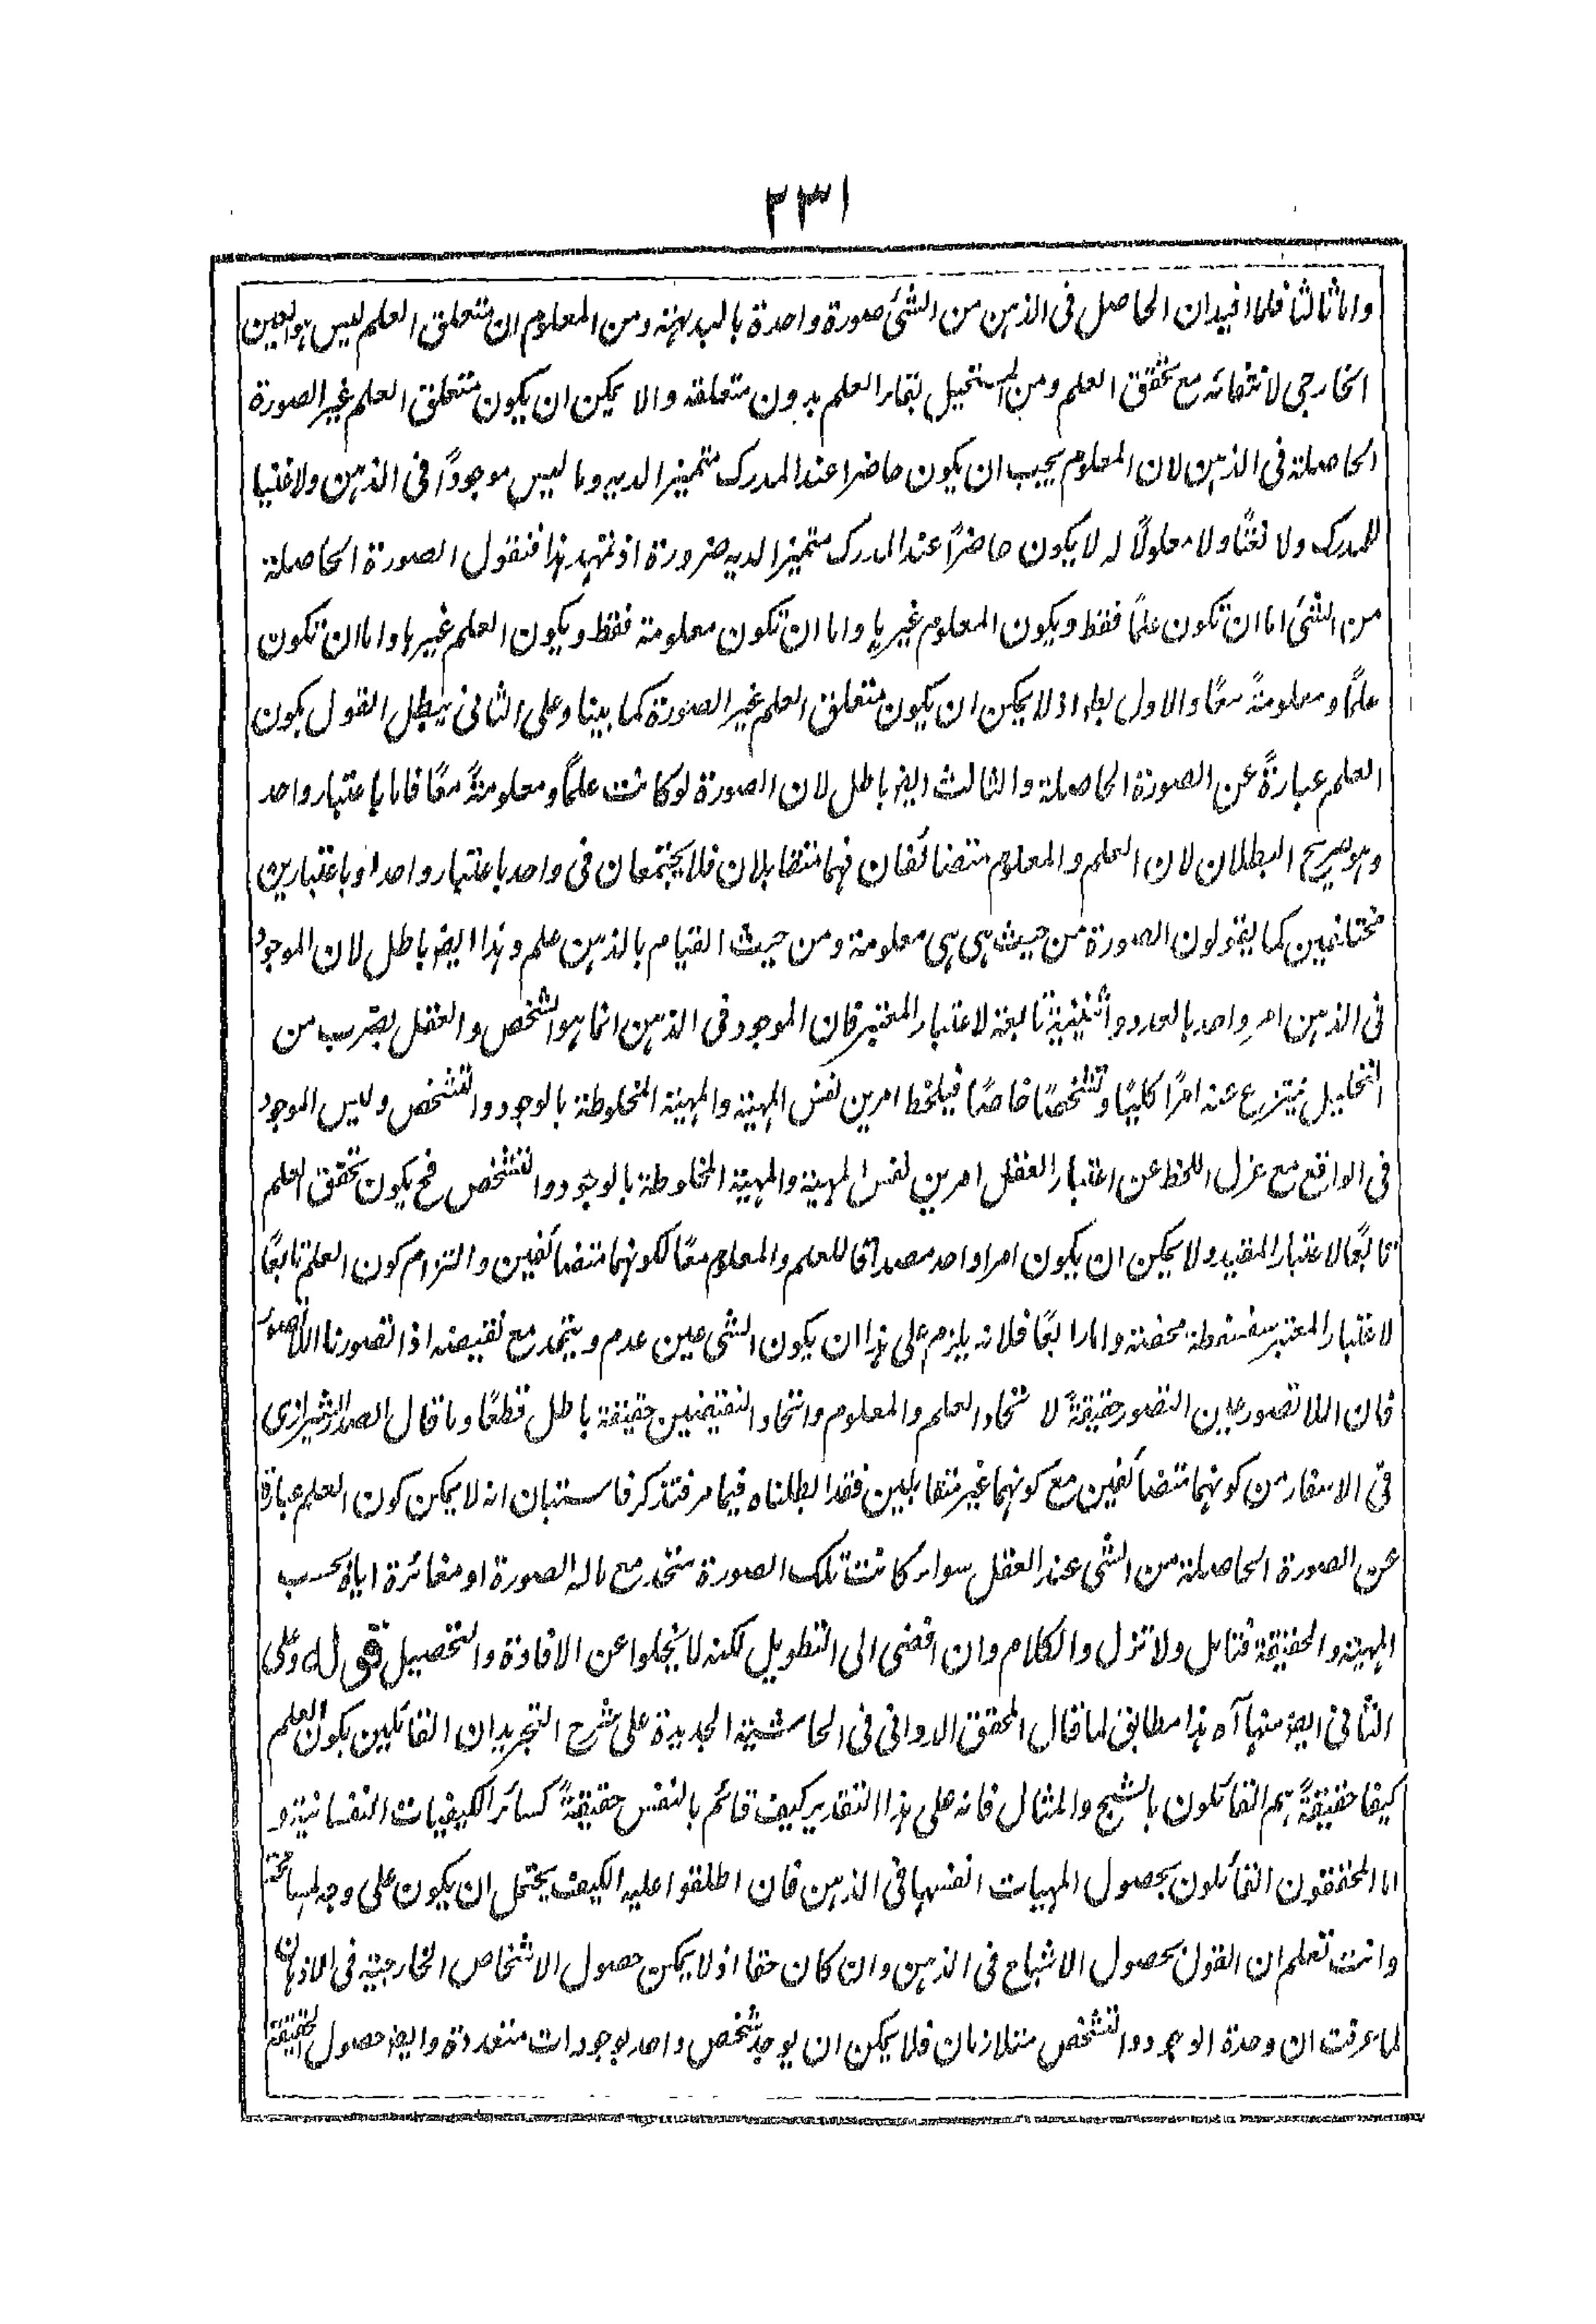 ٢٣١
واما ثالثا فلما افيد ان الحاصل فى الذهن من الشئ صورة واحدة بالبديهة ومن المعلوم ان متعلق العلم ليس هو العين
الخارجى لانتفائه مع تحقق العلم ومن المستحيل بقاء العلم بدون متعلقه والا يمكن ان يكون متعلق العلم غير الصورة
الحاصلة فى الذهن لان المعلوم يجب ان يكون حاضرا عند المدرك متميزا لديه وما ليس موجوداً فى الذهن ولا عينا
للمدرك ولا نعتًا ولا معلولًا له لا يكون حاضراً عند المدرك متميزا لديه ضرورة اذ تمهد هذا فنقول الصورة الحاصلة
من الشئ اما ان تكون علمًا فقط ويكون المعلوم غيرها واما ان تكون معلومة فقط ويكون العلم غيرها واما ان تكون
علمًا ومعلومةً معًا والاول بط اذ لا يمكن ان يكون متعلق العلم غير الصورة كما بينا وعلى الثانى يبطل القول بكون
العلم عبارةً عن الصورة الحاصلة والثالث ايضا باطل لان الصورة لو كانت علمًا ومعلومةً معًا فاما باعتبار واحد
وهو صريح البطلان لان العلم والمعلوم متضائفان فهما متقابلان فلا يجتمعان فى واحد باعتبار واحد او باعتبارين
مختلفين كما يقولون الصورة من حيث هى هى معلومة ومن حيث القيام بالذهن علم وهذا ايضا باطل لان الموجود
فى الذهن امر واحد بالعدد واثنينية تابعة لاعتبار المعتبر فان الموجود فى الذهن انما هو الشخص والعقل بضرب من
التحليل ينتزع عنه امرًا كليًا وتشخصًا خاصًا فيلحظ امرين نفس المهية والمهية المخلوطة بالوجود والتشخص وليس الموجود
فى الواقع مع عزل اللحظ عن اعتبار العقل امرين نفس المهية والمهية المخلوطة بالوجود والتشخص فح يكون تحقق العلم
تابعًا لاعتبار المقيد ولا يمكن ان يكون امرا واحد مصداقا للعلم والمعلوم معًا لكونهما متضائفين والتزام كون العلم تابعًا
لاعتبار المعتبر سفسطة محضة واما رابعًا فلانه يلزم على هذا ان يكون الشئ عين عدم ويتحد مع نقيضه اذا تصورنا اللاتصور
فان اللاتصور عين التصور حقيقةً لاتحاد العلم والمعلوم واتحاد النقيضين حقيقة باطل قطعًا وما قال الصدر الشيرازى
فى الاسفار من كونهما متضائفين مع كونهما غير متقابلين فقد ابطلناه فيما مر فتذكر فاستبان انه لا يمكن كون العلم عبارة
عن الصورة الحاصلة من الشئ عند العقل سواء كانت تلك الصورة متحد مع ما له الصورة او مغائرة اياه بحسب
المهية والحقيقة فتامل ولا تزل والكلام وان افضى الى التطويل لكنه لا يخلوا عن الافادة والتحصيل قوله وعلى
الثانى ايضا منها آه هذا مطابق لما قال المحقق الدوانى فى الحاشية الجديدة على شرح التجريد ان القائلين بكون العلم
كيفا حقيقةً هم القائلون بالشبح والمثال فانه على هذا التقدير كيف قائم بالنفس حقيقةً كسائر الكيفيات النفسانية و
اما المحققون القائلون بحصول المهيات انفسها فى الذهن فان اطلقوا عليه الكيف يحتمل ان يكون على وجه المسامحة
وانت تعلم ان القول بحصول الاشباح فى الذهن وان كان حقا اذ لا يمكن حصول الاشخاص الخارجية فى الاذهان
لما عرفت ان وحدة الوجود والتشخص متلازمان فلا يمكن ان يوجد شخص واحد بوجودات متعددة وايضا حصول الحقيقة